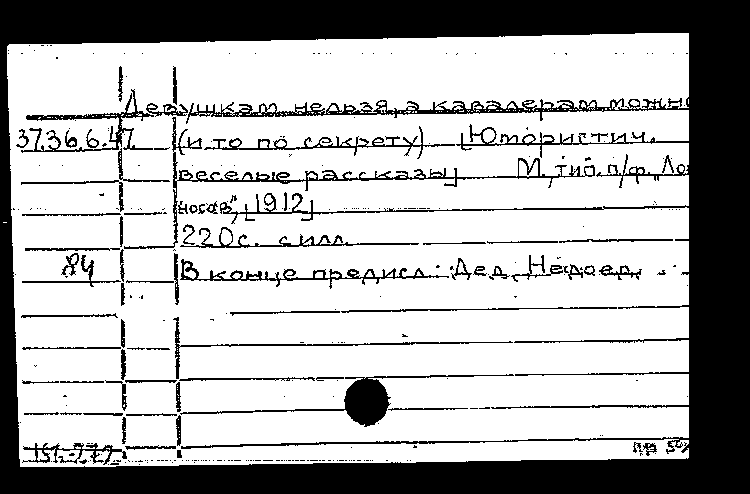 Девушкам нельзя, а кавалерам можно
37.36.6.47. (и то по секрету) [Юмористич.
веселые рассказы] М., тип. п/ф. „Ло
носов", [1912]
220с. с илл.
84 В конце предисл.: Дед Недоед.